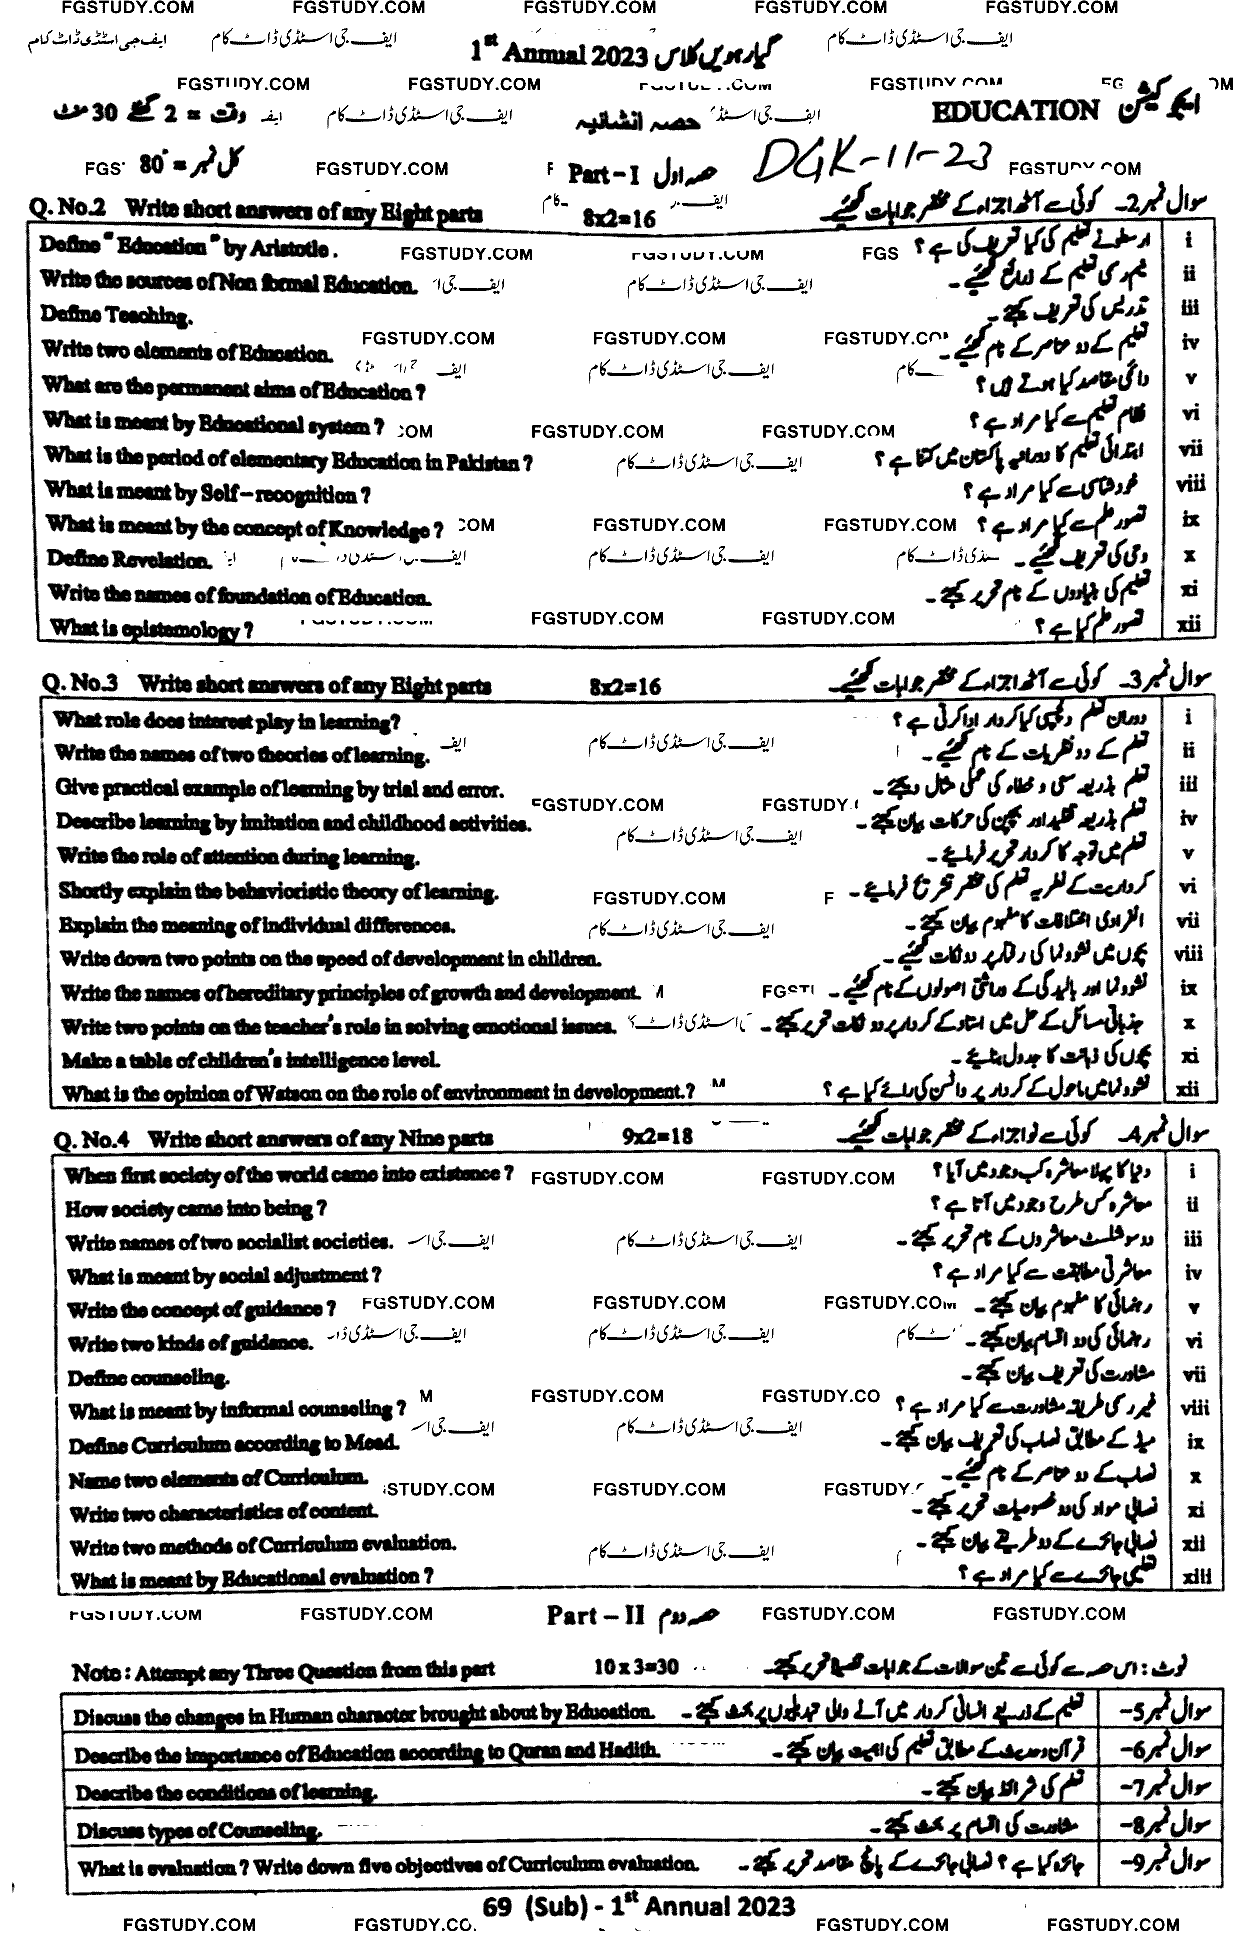 FGSTUDY.COM FGSTUDY.COM FGSTUDY.COM FGSTUDY.COM FGSTUDY.COM
ایف جی اسٹڈی ڈاٹ کام ایف جی اسٹڈی ڈاٹ کام ایف جی اسٹڈی ڈاٹ کام
1st Annual 2023 گیارہویں کلاس
FGSTUDY.COM FGSTUDY.COM FGSTUDY.COM
EDUCATION ایجوکیشن حصہ انشائیہ وقت = 2 گھنٹے 30 منٹ
کل نمبر = 80 FGSTUDY.COM Part-I حصہ اول DGK-11-23 FGSTUDY.COM
Q. No.2 Write short answers of any Eight parts 8x2=16 سوال نمبر 2۔ کوئی سے آٹھ اجزاء کے مختصر جوابات لکھیے۔
Define "Education" by Aristotle. ارسطو نے تعلیم کی کیا تعریف کی ہے؟ i
Write the sources of Non formal Education. نیم رسمی تعلیم کے ذرائع لکھیے۔ ii
Define Teaching. تدریس کی تعریف کیجیے۔ iii
Write two elements of Education. تعلیم کے دو عناصر کے نام لکھیے۔ iv
What are the permanent aims of Education? دائمی مقاصد کیا ہوتے ہیں؟ v
What is meant by Educational system? نظام تعلیم سے کیا مراد ہے؟ vi
What is the period of elementary Education in Pakistan? ابتدائی تعلیم کا دورانیہ پاکستان میں کتنا ہے؟ vii
What is meant by Self-recognition? خود شناسی سے کیا مراد ہے؟ viii
What is meant by the concept of Knowledge? تصور علم سے کیا مراد ہے؟ ix
Define Revelation. وحی کی تعریف لکھیے۔ x
Write the names of foundation of Education. تعلیم کی بنیادوں کے نام تحریر کیجیے۔ xi
What is epistemology? تصور علم کیا ہے؟ xii
Q. No.3 Write short answers of any Eight parts 8x2=16 سوال نمبر 3۔ کوئی سے آٹھ اجزاء کے مختصر جوابات لکھیے۔
What role does interest play in learning? دوران تعلم دلچسپی کیا کردار ادا کرتی ہے؟ i
Write the names of two theories of learning. تعلم کے دو نظریات کے نام لکھیے۔ ii
Give practical example of learning by trial and error. تعلم بذریعہ سعی و خطاء کی عملی مثال دیجیے۔ iii
Describe learning by imitation and childhood activities. تعلم بذریعہ تقلید اور بچپن کی حرکات بیان کیجیے۔ iv
Write the role of attention during learning. تعلم میں توجہ کا کردار تحریر فرمائیے۔ v
Shortly explain the behavioristic theory of learning. کرداریت کے نظریہ تعلم کی مختصر تشریح فرمائیے۔ vi
Explain the meaning of individual differences. انفرادی اختلافات کا مفہوم بیان کیجیے۔ vii
Write down two points on the speed of development in children. بچوں میں نشوونما کی رفتار پر دو نکات لکھیے۔ viii
Write the names of hereditary principles of growth and development. نشوونما اور بالیدگی کے وراثتی اصولوں کے نام لکھیے۔ ix
Write two points on the teacher's role in solving emotional issues. جذباتی مسائل کے حل میں استاد کے کردار پر دو نکات تحریر کیجیے۔ x
Make a table of children's intelligence level. بچوں کی ذہانت کا جدول بنائیے۔ xi
What is the opinion of Watson on the role of environment in development.? نشوونما میں ماحول کے کردار پر واٹسن کی رائے کیا ہے؟ xii
Q. No.4 Write short answers of any Nine parts 9x2=18 سوال نمبر 4۔ کوئی سے نو اجزاء کے مختصر جوابات لکھیے۔
When first society of the world came into existence? دنیا کا پہلا معاشرہ کب وجود میں آیا؟ i
How society came into being? معاشرہ کس طرح وجود میں آتا ہے؟ ii
Write names of two socialist societies. دو سوشلسٹ معاشروں کے نام تحریر کیجیے۔ iii
What is meant by social adjustment? معاشرتی مطابقت سے کیا مراد ہے؟ iv
Write the concept of guidance? رہنمائی کا مفہوم بیان کیجیے۔ v
Write two kinds of guidance. رہنمائی کی دو اقسام بیان کیجیے۔ vi
Define counseling. مشاورت کی تعریف بیان کیجیے۔ vii
What is meant by informal counseling? غیر رسمی طریقہ مشاورت سے کیا مراد ہے؟ viii
Define Curriculum according to Mead. میڈ کے مطابق نصاب کی تعریف بیان کیجیے۔ ix
Name two elements of Curriculum. نصاب کے دو عناصر کے نام لکھیے۔ x
Write two characteristics of content. نصابی مواد کی دو خصوصیات تحریر کیجیے۔ xi
Write two methods of Curriculum evaluation. نصابی جائزے کے دو طریقے بیان کیجیے۔ xii
What is meant by Educational evaluation? تعلیمی جائزے سے کیا مراد ہے؟ xiii
FGSTUDY.COM FGSTUDY.COM Part-II حصہ دوم FGSTUDY.COM FGSTUDY.COM
Note: Attempt any Three Question from this part 10x3=30 نوٹ: اس حصہ سے کوئی سے تین سوالات کے جوابات تفصیلاً تحریر کیجیے۔
Discuss the changes in Human character brought about by Education. تعلیم کے ذریعے انسانی کردار میں آنے والی تبدیلیوں پر بحث کیجیے۔ سوال نمبر 5-
Describe the importance of Education according to Quran and Hadith. قرآن و حدیث کے مطابق تعلیم کی اہمیت بیان کیجیے۔ سوال نمبر 6-
Describe the conditions of learning. تعلم کی شرائط بیان کیجیے۔ سوال نمبر 7-
Discuss types of Counseling. مشاورت کی اقسام پر بحث کیجیے۔ سوال نمبر 8-
What is evaluation? Write down five objectives of Curriculum evaluation. جائزہ کیا ہے؟ نصابی جائزے کے پانچ مقاصد تحریر کیجیے۔ سوال نمبر 9-
69 (Sub) - 1st Annual 2023
FGSTUDY.COM FGSTUDY.CO FGSTUDY.COM FGSTUDY.COM